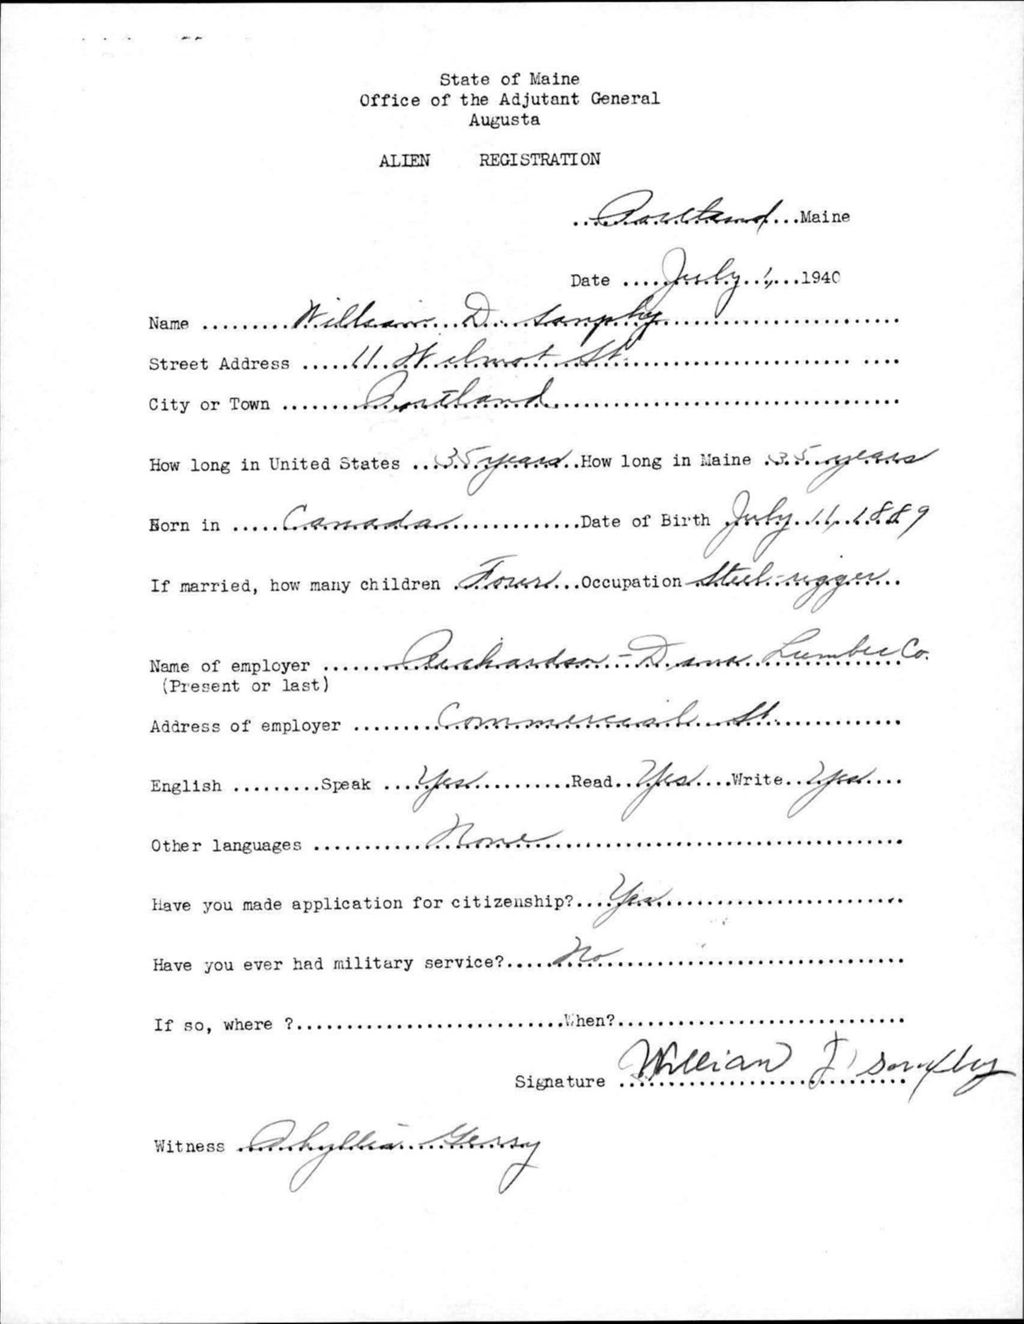 State of Maine
Office of the Adjutant General
Augusta
ALIEN REGISTRATION
Portland Maine
Date July 1, 1940
Name William D. Sanphy
Street Address 11 Wilmot St.
City or Town Portland
How long in United States 35 years How long in Maine 35 years
Born in Canada Date of Birth July 11, 1889
If married, how many children Four Occupation Steel-rigger
Name of employer Richardson-Dana Lumber Co.
(Present or last)
Address of employer Commercial St.
English Speak Yes Read Yes Write Yes
Other languages None
Have you made application for citizenship? Yes
Have you ever had military service? No
If so, where ? When?
Signature William
Witness Phyllis